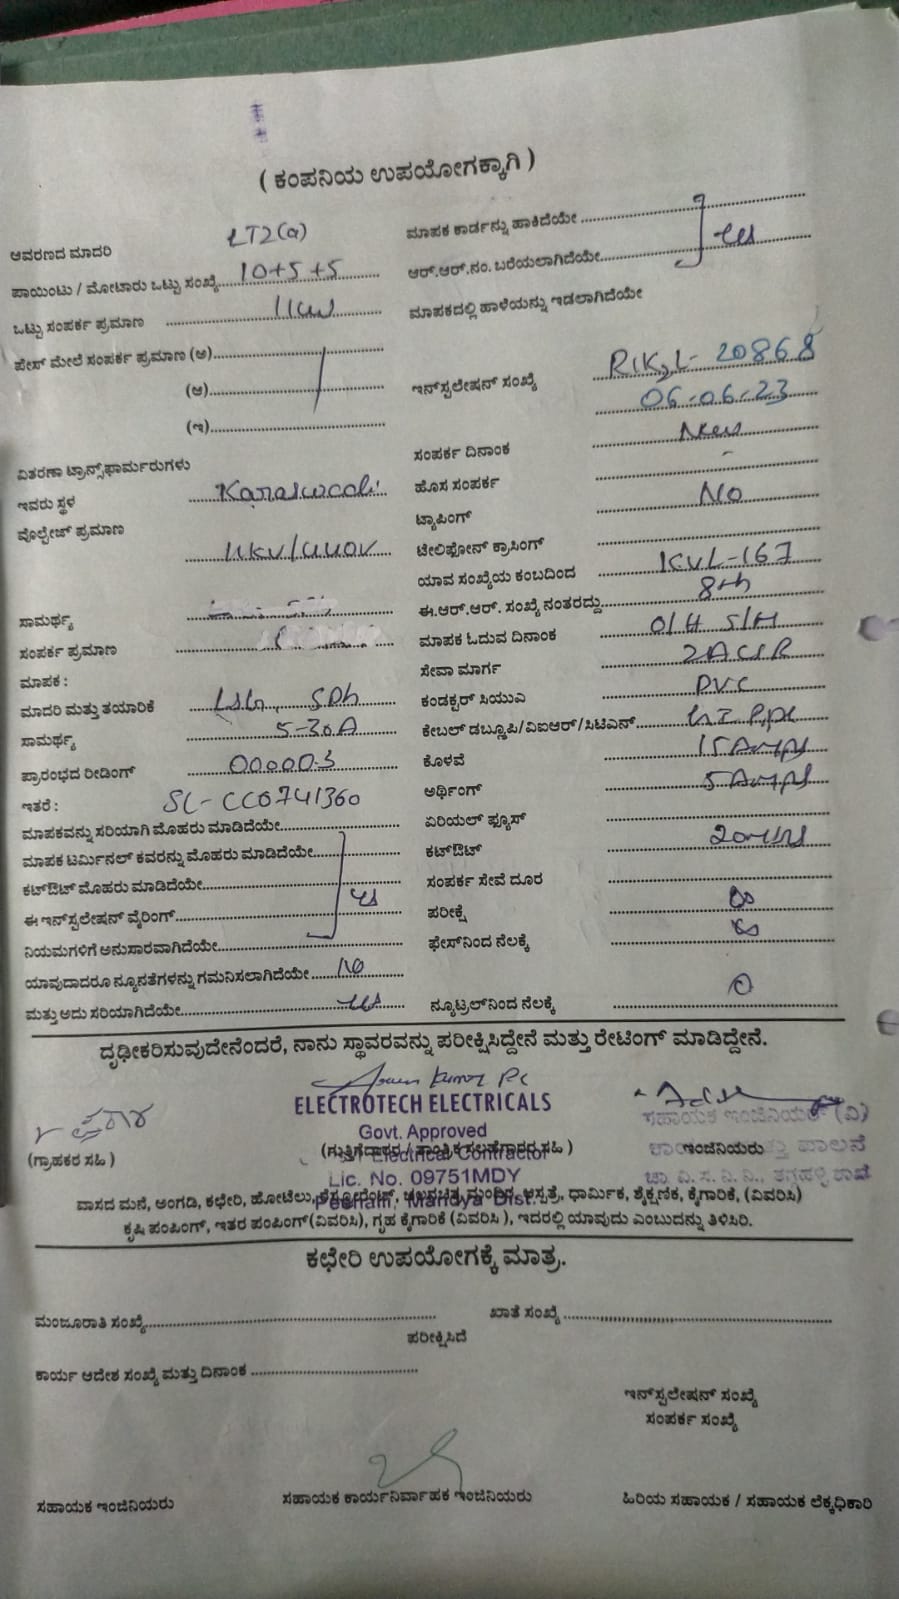 ( ಕಂಪನಿಯ ಉಪಯೋಗಕ್ಕಾಗಿ )
ಆವರಣದ ಮಾದರಿ LT2(a)
ಪಾಯಿಂಟು / ಮೋಟಾರು ಒಟ್ಟು ಸಂಖ್ಯೆ 10+5+5
ಒಟ್ಟು ಸಂಪರ್ಕ ಪ್ರಮಾಣ
ಫೇಸ್ ಮೇಲೆ ಸಂಪರ್ಕ ಪ್ರಮಾಣ (ಅ)
(ಆ)
(ಇ)
ವಿತರಣಾ ಟ್ರಾನ್ಸ್‌ಫಾರ್ಮರುಗಳು
ಇವರು ಸ್ಥಳ
ವೊಲ್ಟೇಜ್ ಪ್ರಮಾಣ 11KV/440V
ಸಾಮರ್ಥ್ಯ
ಸಂಪರ್ಕ ಪ್ರಮಾಣ
ಮಾಪಕ :
ಮಾದರಿ ಮತ್ತು ತಯಾರಿಕೆ
ಸಾಮರ್ಥ್ಯ 5-30A
ಪ್ರಾರಂಭದ ರೀಡಿಂಗ್ 00000.3
ಇತರೆ : SL-CC0741360
ಮಾಪಕವನ್ನು ಸರಿಯಾಗಿ ಮೊಹರು ಮಾಡಿದೆಯೇ
ಮಾಪಕ ಟರ್ಮಿನಲ್ ಕವರನ್ನು ಮೊಹರು ಮಾಡಿದೆಯೇ
ಕಟ್‌ಔಟ್ ಮೊಹರು ಮಾಡಿದೆಯೇ
ಈ ಇನ್‌ಸ್ಟಲೇಷನ್ ವೈರಿಂಗ್ yes
ನಿಯಮಗಳಿಗೆ ಅನುಸಾರವಾಗಿದೆಯೇ
ಯಾವುದಾದರೂ ನ್ಯೂನತೆಗಳನ್ನು ಗಮನಿಸಲಾಗಿದೆಯೇ No
ಮತ್ತು ಅದು ಸರಿಯಾಗಿದೆಯೇ yes
ಮಾಪಕ ಕಾರ್ಡನ್ನು ಹಾಕಿದೆಯೇ
ಆರ್.ಆರ್.ನಂ. ಬರೆಯಲಾಗಿದೆಯೇ yes
ಮಾಪಕದಲ್ಲಿ ಹಾಳೆಯನ್ನು ಇಡಲಾಗಿದೆಯೇ
ಇನ್‌ಸ್ಟಲೇಷನ್ ಸಂಖ್ಯೆ 20868
06-06-23
ಸಂಪರ್ಕ ದಿನಾಂಕ New
ಹೊಸ ಸಂಪರ್ಕ -
ಟ್ಯಾಪಿಂಗ್ No
ಟೇಲಿಫೋನ್ ಕ್ರಾಸಿಂಗ್
ಯಾವ ಸಂಖ್ಯೆಯ ಕಂಬದಿಂದ KVL-167
ಈ.ಆರ್.ಆರ್. ಸಂಖ್ಯೆ ನಂತರದ್ದು 8th
ಮಾಪಕ ಓದುವ ದಿನಾಂಕ O/H S/H
ಸೇವಾ ಮಾರ್ಗ 2ACSR
ಕಂಡಕ್ಟರ್ ಸಿಯುಎ PVC
ಕೇಬಲ್ ಡಬ್ಲೂಪಿ/ವಿಐಆರ್/ಸಿಟಿಎಸ್
ಕೊಳವೆ 15 Amps
ಅರ್ಥಿಂಗ್ 5 Amps
ಏರಿಯಲ್ ಫ್ಯೂಸ್
ಕಟ್‌ಔಟ್
ಸಂಪರ್ಕ ಸೇವೆ ದೂರ
ಪರೀಕ್ಷೆ ∞
ಫೇಸ್‌ನಿಂದ ನೆಲಕ್ಕೆ ∞
ನ್ಯೂಟ್ರಲ್‌ನಿಂದ ನೆಲಕ್ಕೆ 0
ದೃಢೀಕರಿಸುವುದೇನೆಂದರೆ, ನಾನು ಸ್ಥಾವರವನ್ನು ಪರೀಕ್ಷಿಸಿದ್ದೇನೆ ಮತ್ತು ರೇಟಿಂಗ್ ಮಾಡಿದ್ದೇನೆ.
ELECTROTECH ELECTRICALS
Govt. Approved
Electrical Contractor
Lic. No. 09751MDY
Mandya Dist.
(ಗ್ರಾಹಕರ ಸಹಿ )
ಸಹಾಯಕ ಇಂಜಿನಿಯರ್ (ವಿ)
ಇಂಜಿನಿಯರು
ವಾಸದ ಮನೆ, ಅಂಗಡಿ, ಕಛೇರಿ, ಹೋಟೆಲು, ಧಾರ್ಮಿಕ, ಶೈಕ್ಷಣಿಕ, ಕೈಗಾರಿಕೆ, (ವಿವರಿಸಿ)
ಕೃಷಿ ಪಂಪಿಂಗ್, ಇತರ ಪಂಪಿಂಗ್(ವಿವರಿಸಿ), ಗೃಹ ಕೈಗಾರಿಕೆ (ವಿವರಿಸಿ ), ಇದರಲ್ಲಿ ಯಾವುದು ಎಂಬುದನ್ನು ತಿಳಿಸಿರಿ.
ಕಛೇರಿ ಉಪಯೋಗಕ್ಕೆ ಮಾತ್ರ.
ಮಂಜೂರಾತಿ ಸಂಖ್ಯೆ ಖಾತೆ ಸಂಖ್ಯೆ
ಪರೀಕ್ಷಿಸಿದೆ
ಕಾರ್ಯ ಆದೇಶ ಸಂಖ್ಯೆ ಮತ್ತು ದಿನಾಂಕ
ಇನ್‌ಸ್ಟಲೇಷನ್ ಸಂಖ್ಯೆ
ಸಂಪರ್ಕ ಸಂಖ್ಯೆ
ಸಹಾಯಕ ಇಂಜಿನಿಯರು ಸಹಾಯಕ ಕಾರ್ಯನಿರ್ವಾಹಕ ಇಂಜಿನಿಯರು ಹಿರಿಯ ಸಹಾಯಕ / ಸಹಾಯಕ ಲೆಕ್ಕಧಿಕಾರಿ